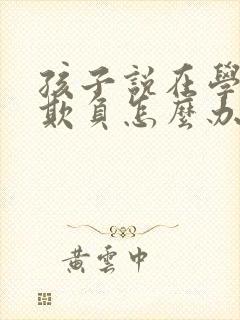 孩子說在學
欺負怎麼办
黃雲中